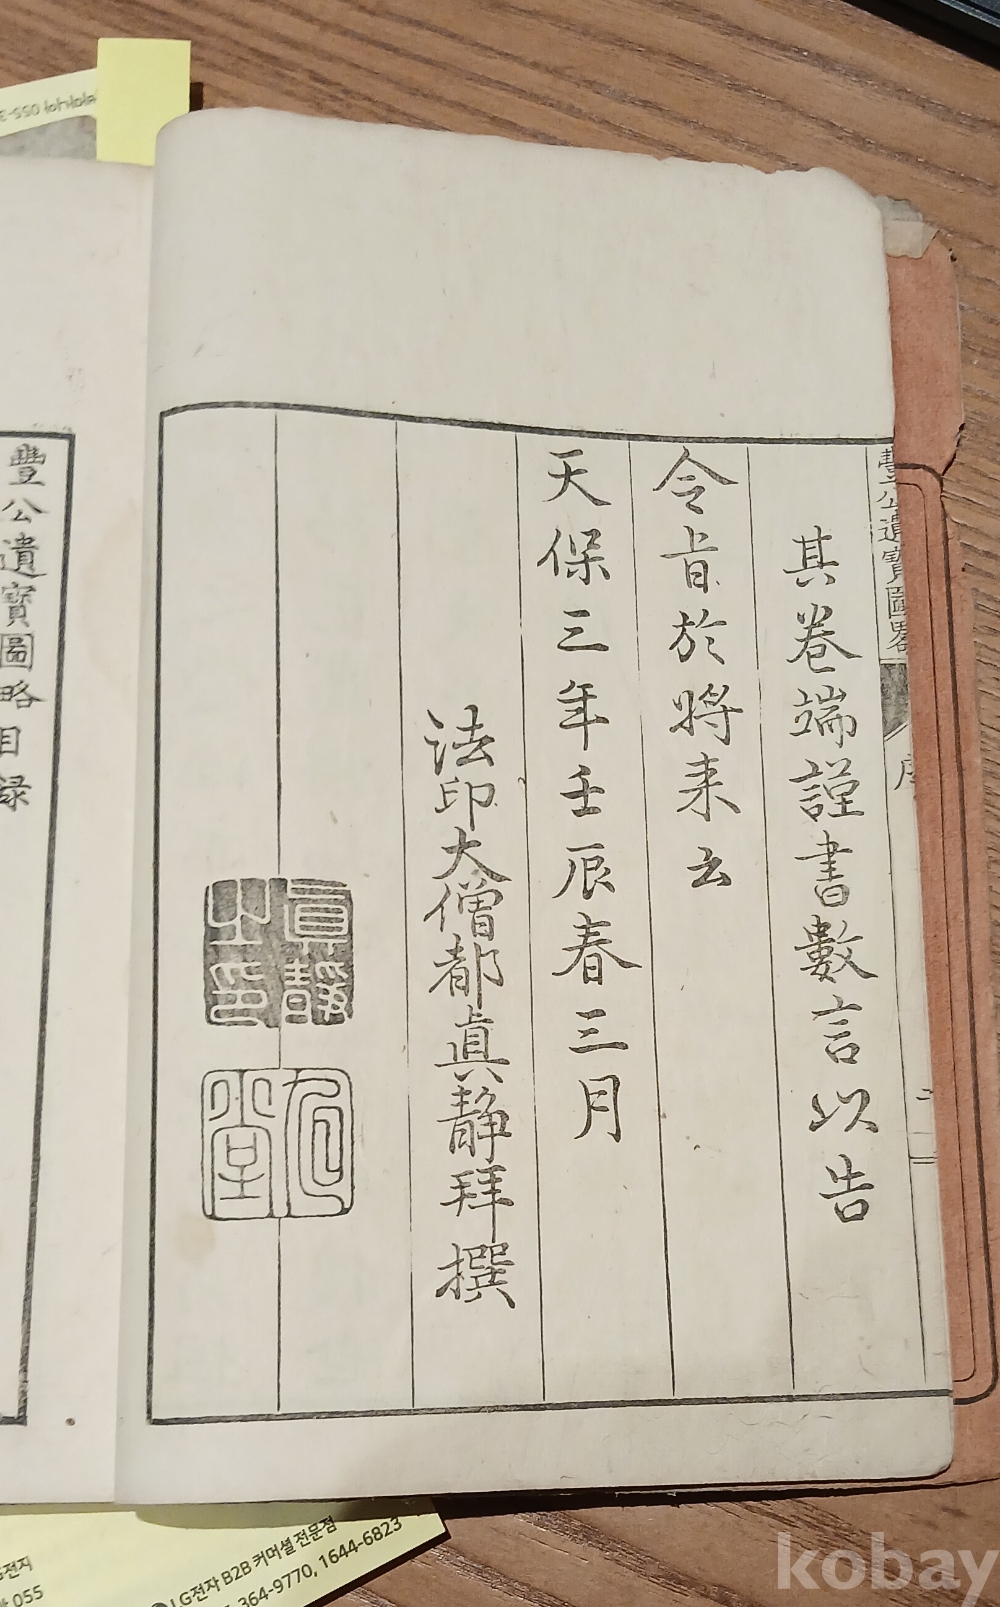 豐公遺寶圖畧
序
二
其卷端謹書數言以告
令旨於將来云
天保三年壬辰春三月
法印大僧都眞静拜撰
眞靜
之印
豐公遺寶圖略目录
055-3
LG전자 B2B 커머셜 전문점
364-9770, 1644-6823
전지
055
kobay